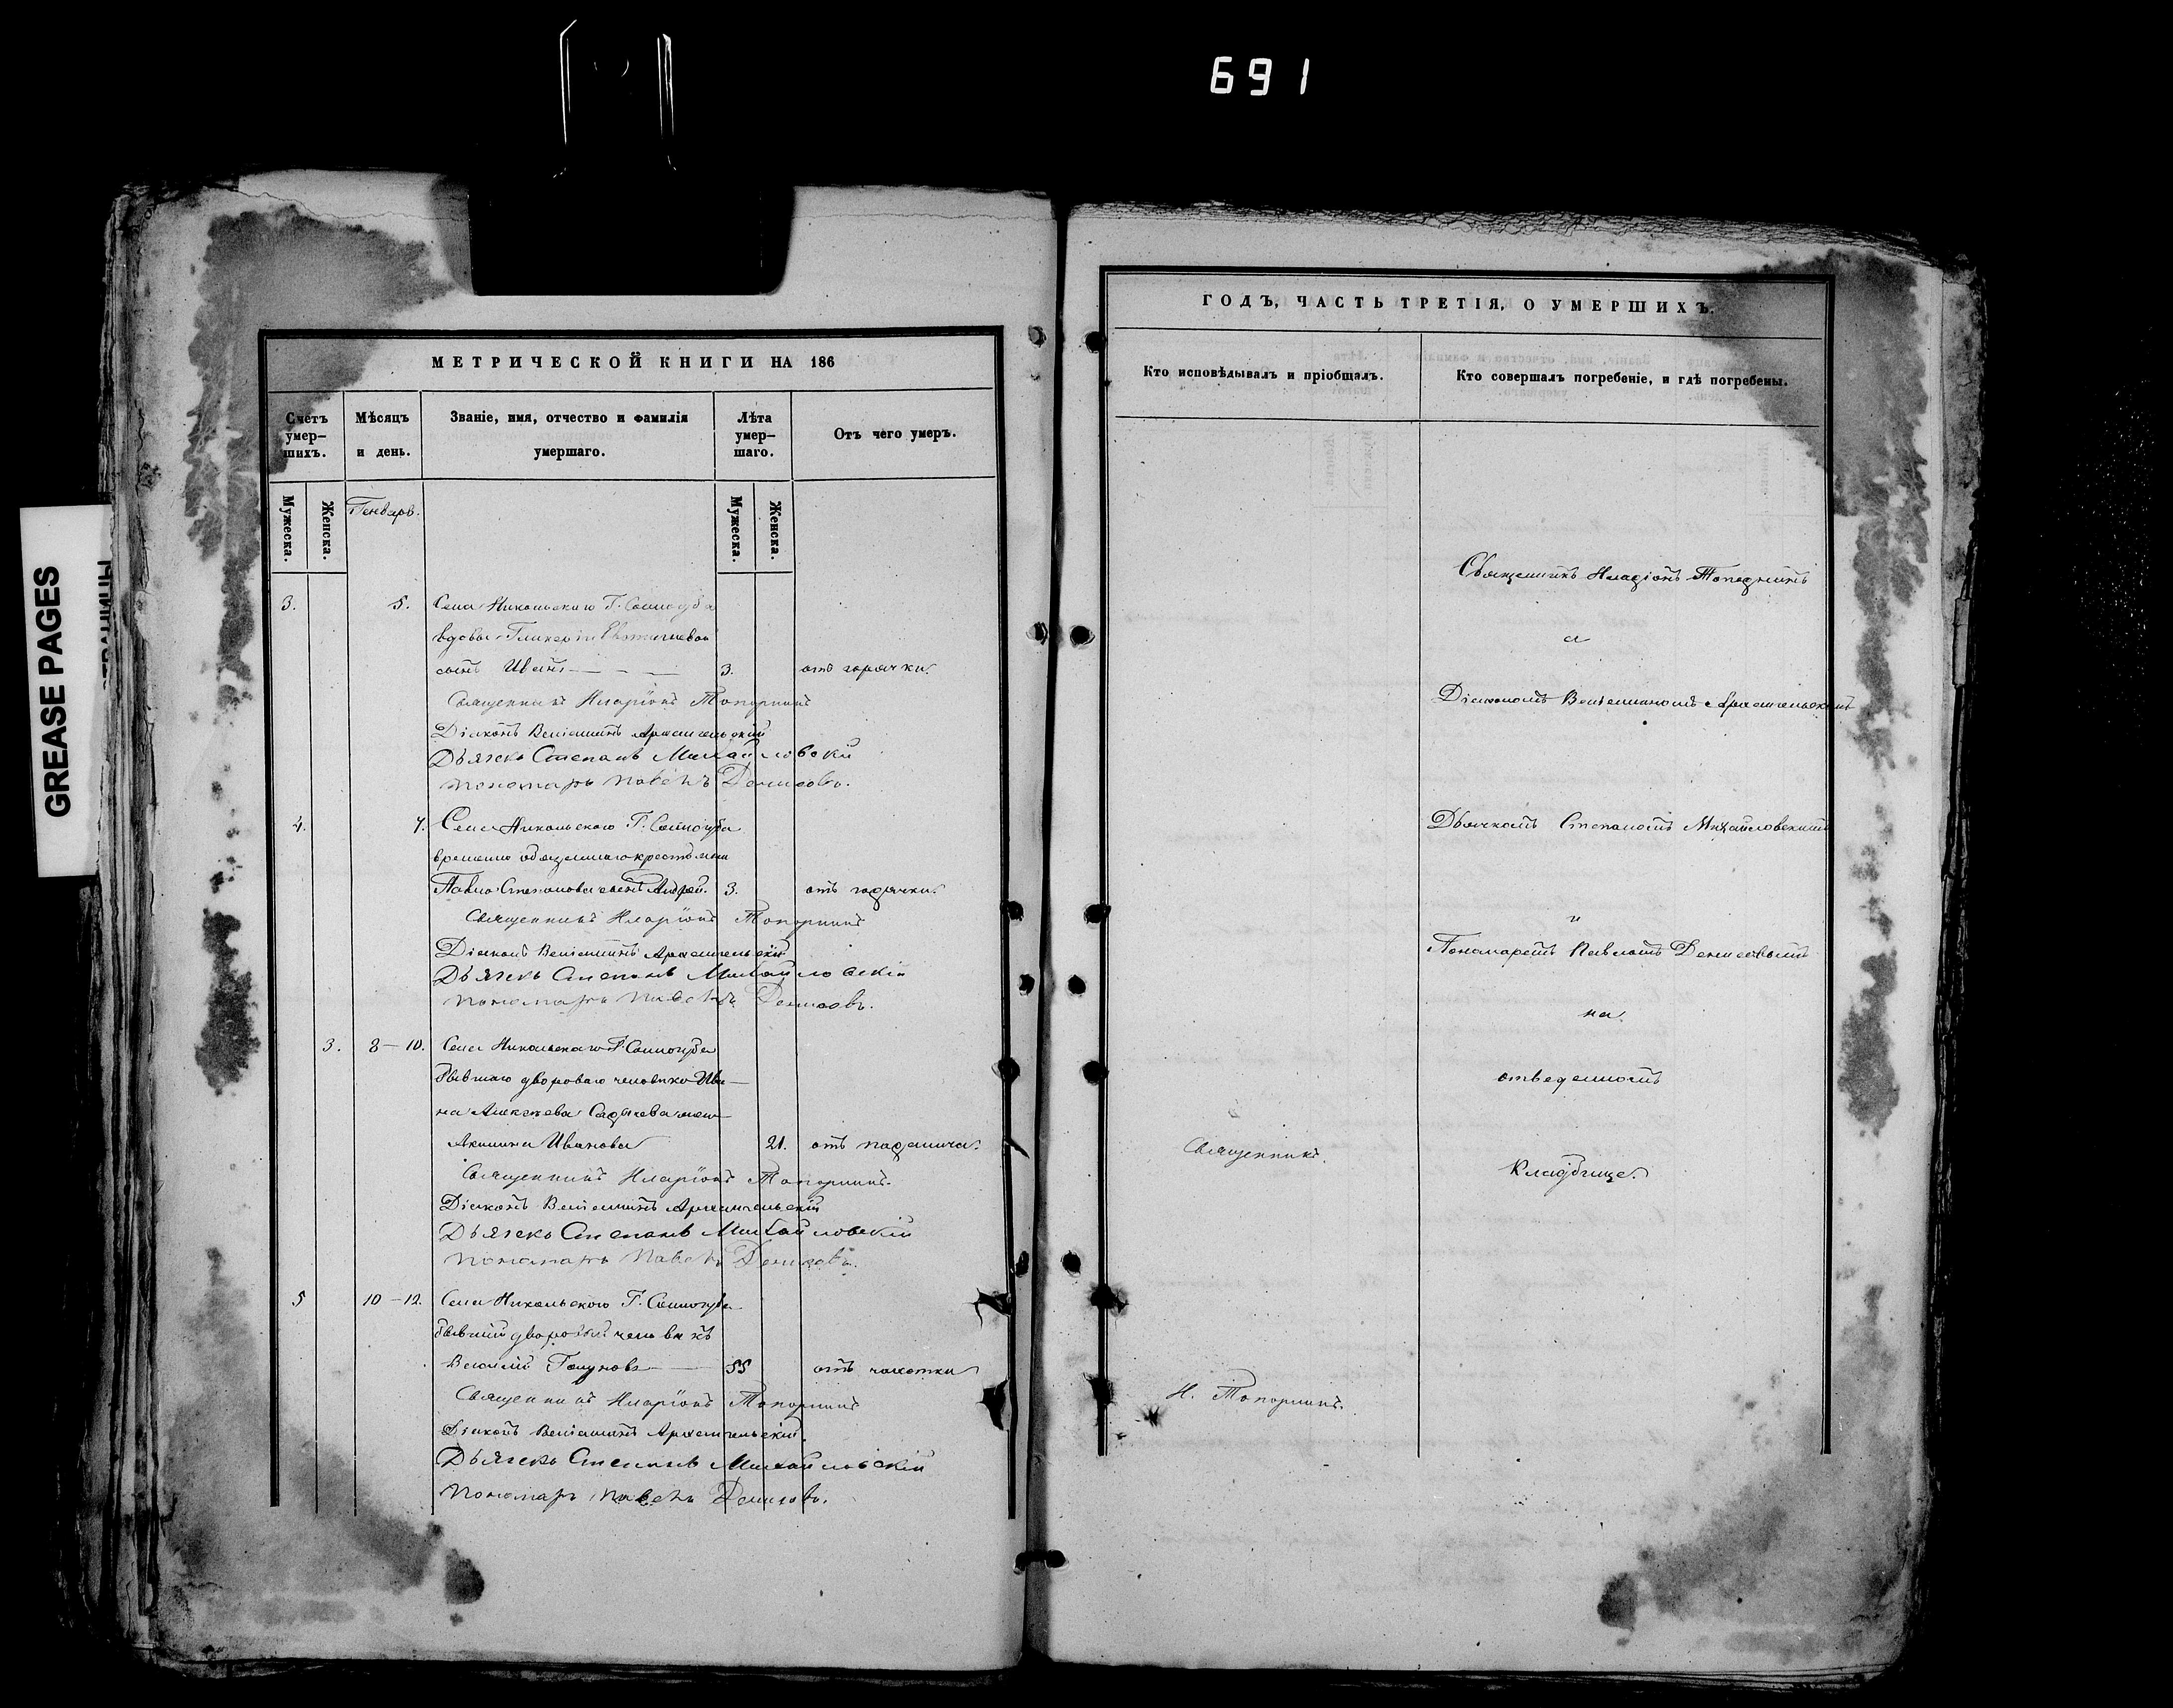 691
GREASE PAGES
МЕТРИЧЕСКОЙ КНИГИ НА 186
Счетъ умер-шихъ.
Мѣсяцъ и день.
Званіе, имя, отчество и фамилія умершаго.
Лѣта умер-шаго.
Отъ чего умеръ.
Мужеска.
Женска.
Генварь.
Мужеска.
Женска.
3. 5. Села Никольскаго Г. Соллогуба
вдовы Гликеріи
сынъ Иванъ 3. отъ горячки.
Священникъ Иларіонъ Топорнинъ
Діаконъ Веніаминъ Архангельскій
Дьячекъ Степанъ Михайловскій
Пономарь Павелъ Денисовъ.
4. 7. Села Никольскаго Г. Соллогуба
временно обязаннаго крестьянина
Павла Степанова сынъ Андрей. 3. отъ горячки.
Священникъ Иларіонъ Топорнинъ
Діаконъ Веніаминъ Архангельскій
Дьячекъ Степанъ Михайловскій
Пономарь Павелъ Денисовъ.
3. 8–10. Села Никольскаго Г. Соллогуба
бывшаго двороваго человѣка Ива-
на Алексѣева жена
Акилина Иванова 21. отъ
Священникъ Иларіонъ Топорнинъ.
Діаконъ Веніаминъ Архангельскій
Дьячекъ Степанъ Михайловскій
Пономарь Павелъ Денисовъ.
5 10–12. Села Никольскаго Г. Соллогуба
бывший дворовый человѣкъ
Василій 55 отъ чахотки
Священникъ Иларіонъ Топорнинъ
Діаконъ Веніаминъ Архангельскій.
Дьячекъ Степанъ Михайловскій
Пономарь Павелъ Денисовъ.
ГОДЪ, ЧАСТЬ ТРЕТІЯ, О УМЕРШИХЪ.
Кто исповѣдывалъ и пріобщалъ.
Кто совершалъ погребеніе, и гдѣ погребены.
Священникъ Иларіонъ Топорнинъ
с
Діакономъ Веніаминомъ Архангельскимъ
Дьячкомъ Степаномъ Михайловскимъ
и
Пономаремъ Павломъ Денисовымъ
на
отведенномъ
Кладбище.
Священникъ
И. Топорнинъ.